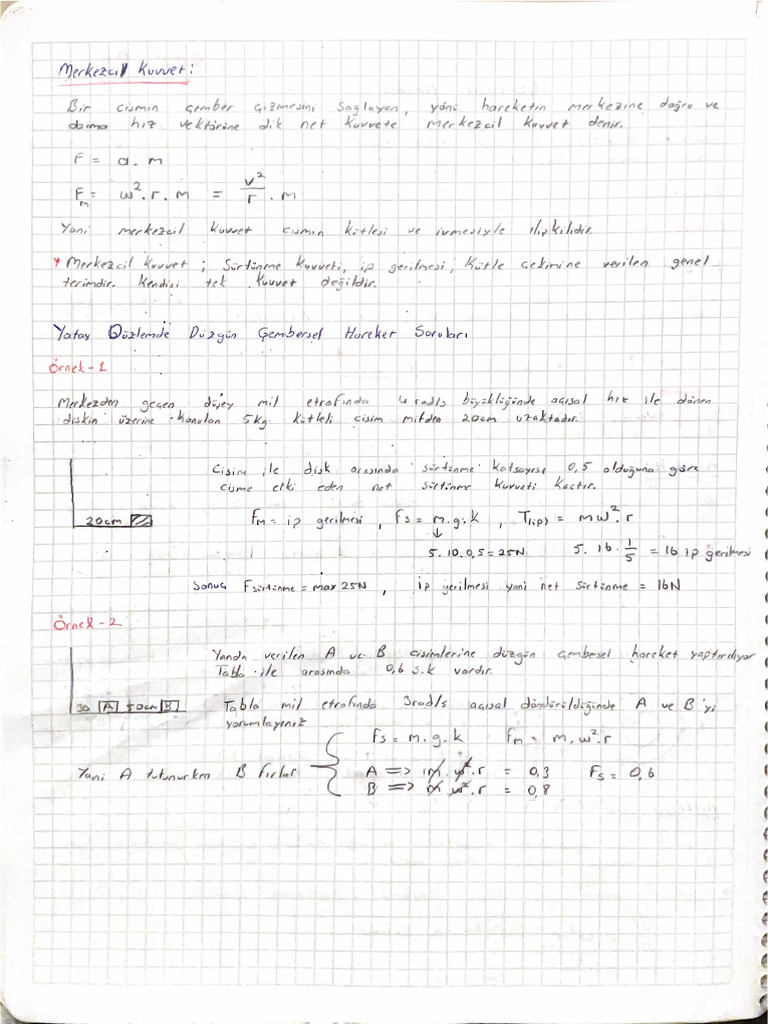 Merkezcil Kuvvet:
Bir cismin çember çizmesini sağlayan, yani hareketin merkezine doğru ve
daima hız vektörüne dik net kuvvete merkezcil kuvvet denir.
F = a.m
Fm = w².r.m = v²/r .m
Yani merkezcil kuvvet cismin kütlesi ve ivmesiyle ilişkilidir.
* Merkezcil kuvvet; Sürtünme kuvveti, ip gerilmesi, kütle çekimine verilen genel
terimdir. Kendisi tek kuvvet değildir.
Yatay Düzlemde Düzgün Çembersel Hareket Soruları
Örnek-1
Merkezden geçen düşey mil etrafında 4 rad/s büyüklüğünde açısal hız ile dönen
diskin üzerine konulan 5kg kütleli cisim milden 20cm uzaktadır.
Cisim ile disk arasında sürtünme katsayısı 0,5 olduğuna göre
cisme etki eden net sürtünme kuvveti kaçtır.
20cm
Fm = ip gerilmesi, Fs = m.g.k, T(ip) = mw².r
↓
5.10.0,5 = 25N 5.16.1/5 = 16 ip gerilmesi
Sonuç Fsürtünme = max 25N, ip gerilmesi yani net sürtünme = 16N
Örnek-2
Yanda verilen A ve B cisimlerine düzgün çembesel hareket yaptırılıyor
Tabla ile arasında 0,6 s.k vardır.
30 A 50cm B
Tabla mil etrafında 3rad/s açısal döndürüldüğünde A ve B'yi
yorumlayınız
Fs = m.g.k Fm = m.w².r
Yani A tutunurken B fırlar
A => m.w².r = 0,3 Fs = 0,6
B => m w².r = 0,8